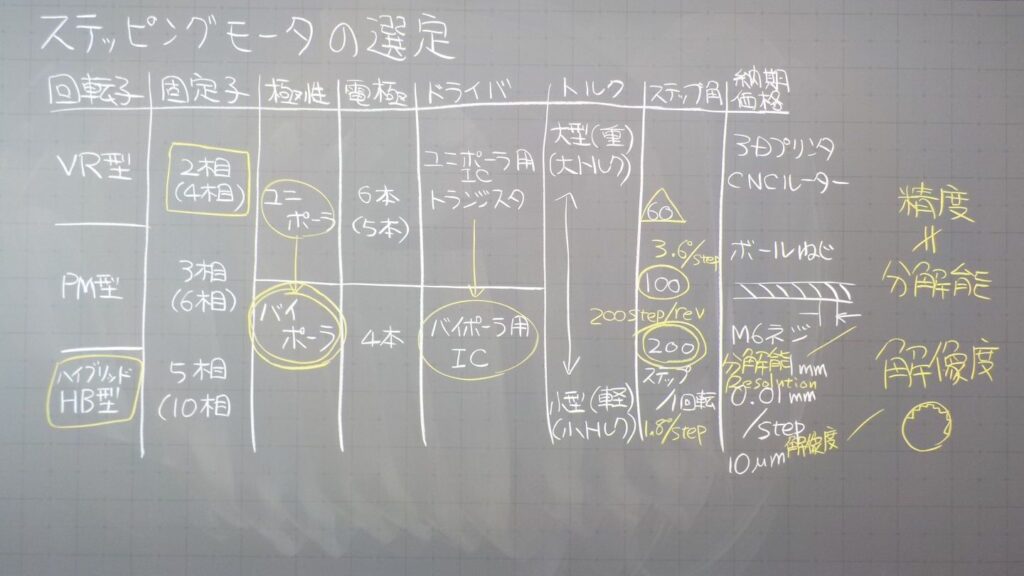 ステッピングモータの選定
回転子
固定子
極性
電極
ドライバ
トルク
ステップ角
納期
価格
VR型
PM型
ハイブリッド
HB型
2相
(4相)
3相
(6相)
5相
(10相
ユニ
ポーラ
バイ
ポーラ
6本
(5本)
4本
ユニポーラ用
IC
トランジスタ
バイポーラ用
IC
大型(重)
(大トルク)
小型(軽)
(小トルク)
60
3.6°/step
100
200step/rev
200
ステップ
/1回転
1.8°/step
3Dプリンタ
CNCルーター
ボールねじ
M6ネジ
1mm
分解能
Resolution
0.01mm
/step
解像度
10μm
精度
分解能
解像度